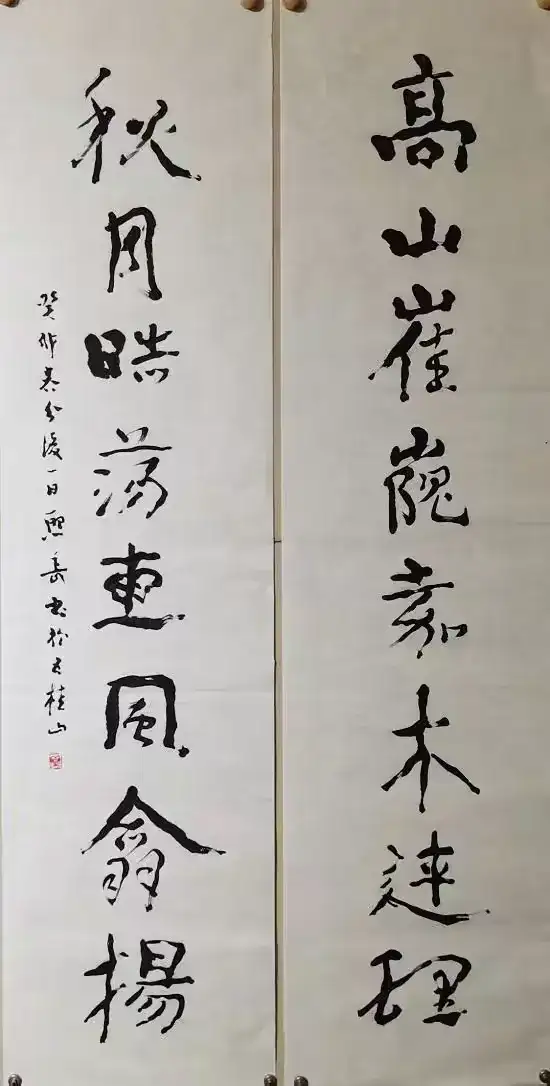 高山崔巍嘉木連理
秋月晧蕩惠風翕揚
癸卯春分後一日熙岳書於桂山